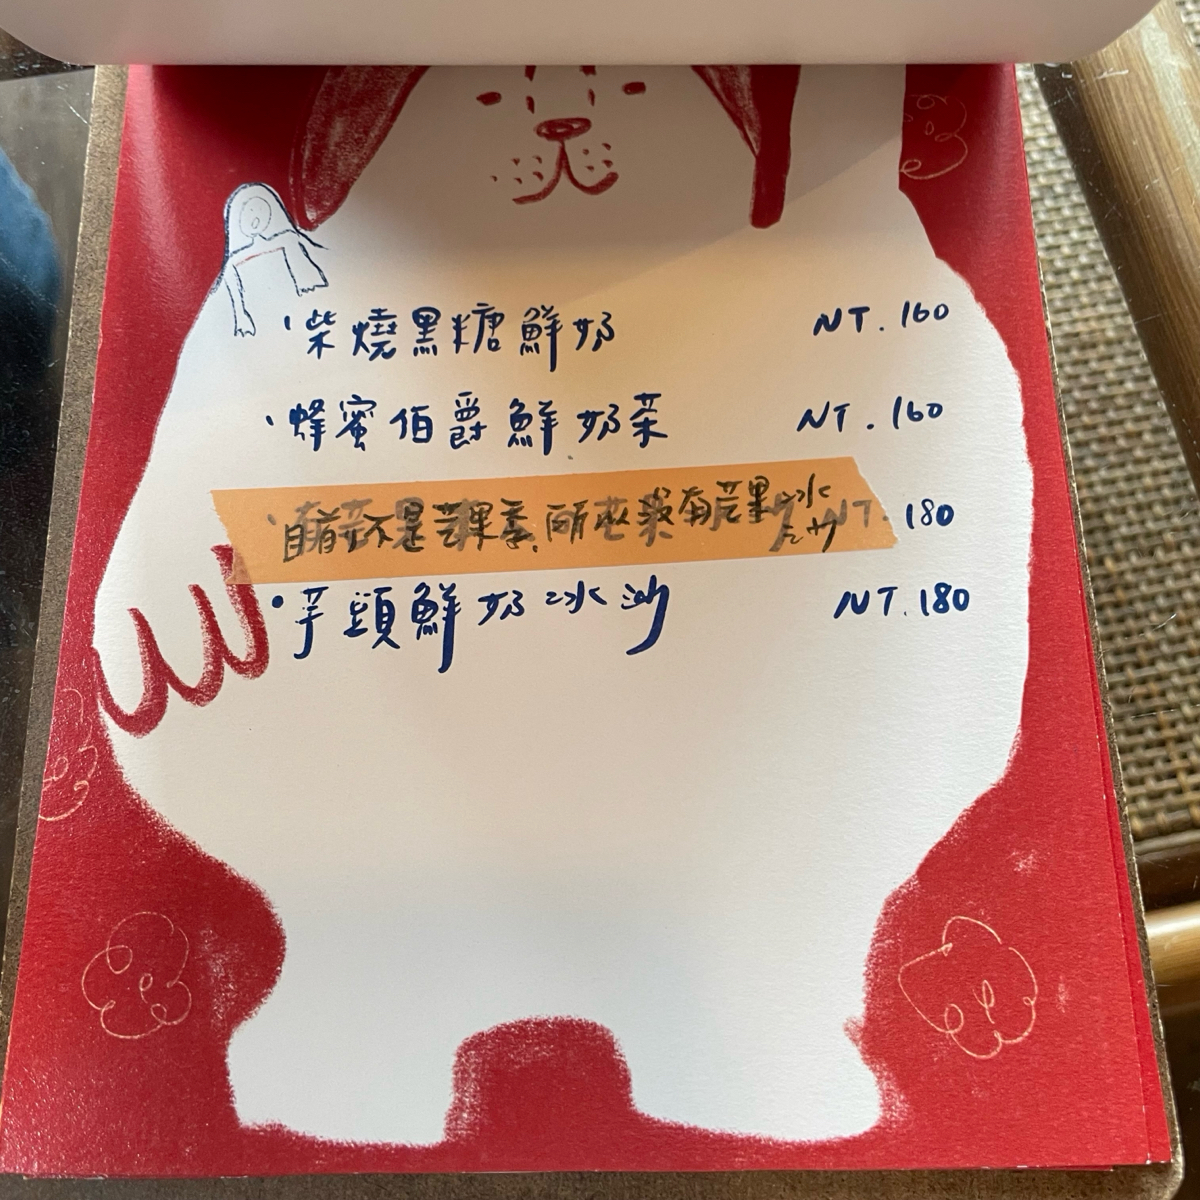 柴燒黑糖鮮奶 NT.160
蜂蜜伯爵鮮奶茶 NT.160
目前不是芒果季,所以沒有芒果冰沙 NT. 180
芋頭鮮奶冰沙 NT.180